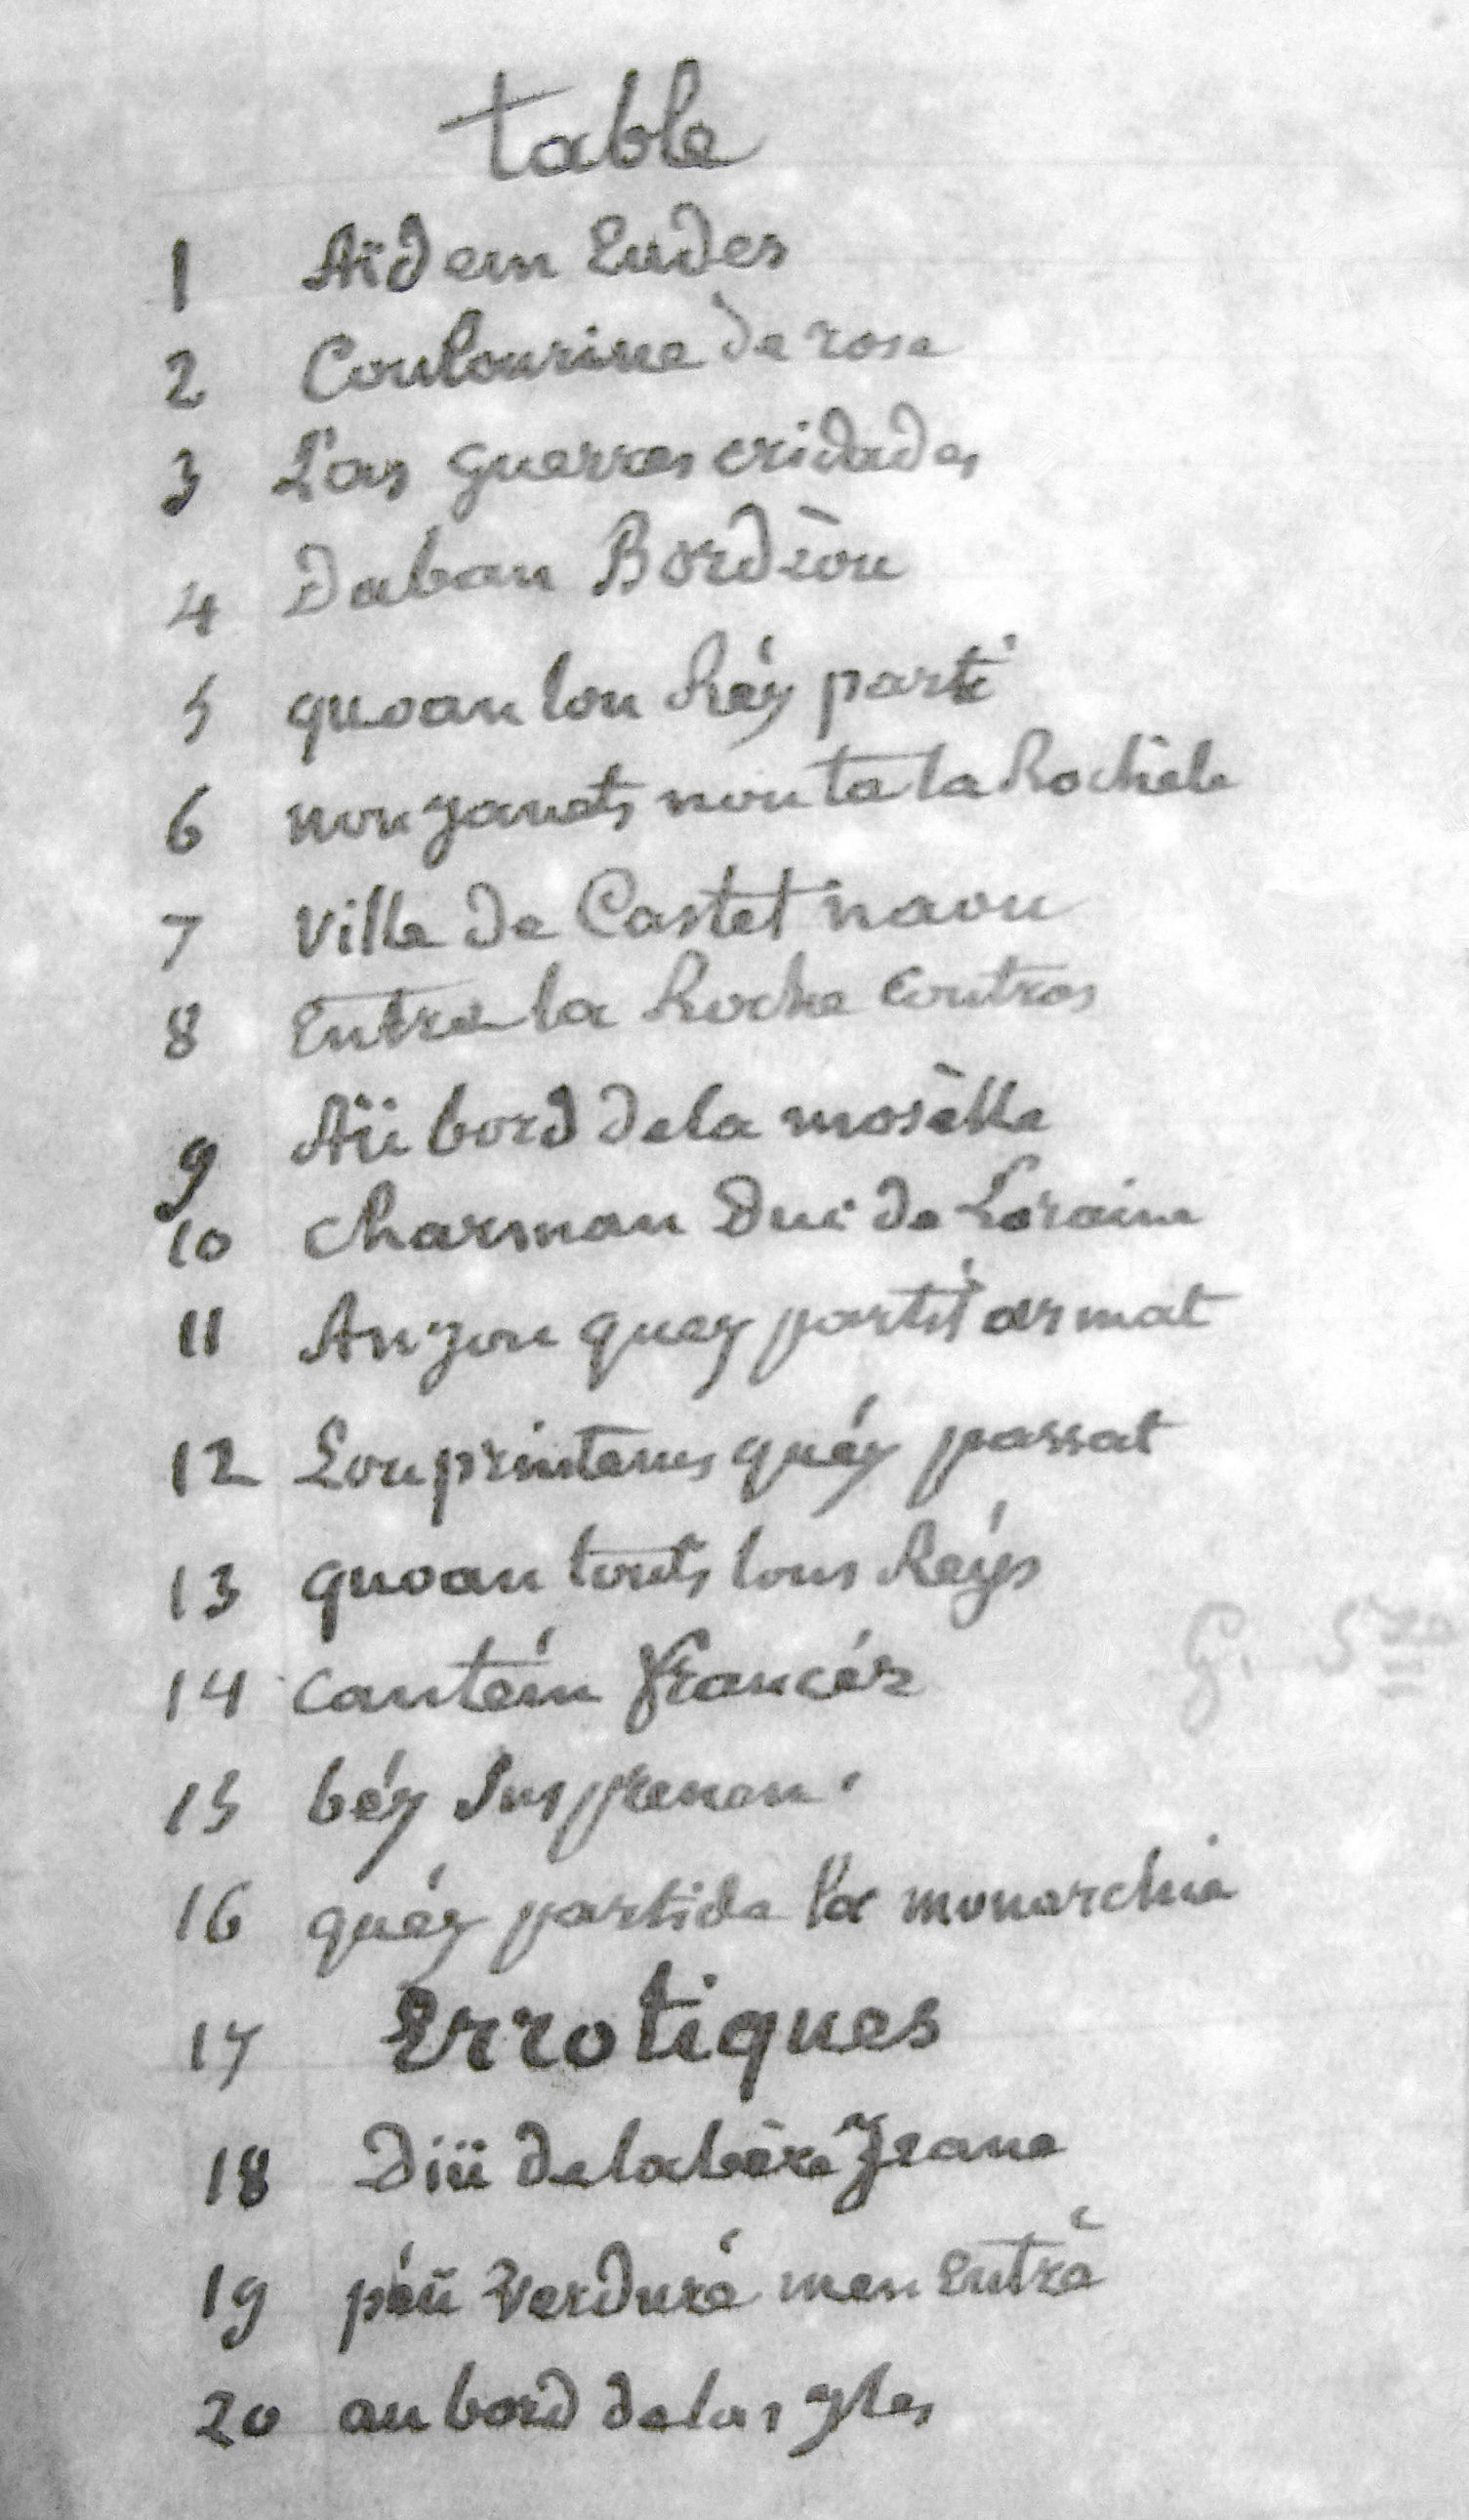 table
1 Aïdem Eudes
2 Coulourine de rose
3 Las guerres cridades
4 Daban Bordèou
5 quoan lou Réy parti
6 nou la Rochèle
7 Ville de Castet naou
8 Entre la Roche Coutras
9 Aü bord de la mosèlle
10 Charman Duc de Loraine
11 Anjou quey partit armat
12 Lou printems quéy passat
13 quoan touts lous Reys
14 cantém Francés
15 béy
16 quéy partide la monarchie
17 Errotiques
18 Diü de la bère Jeane
19 péü Verduré men Entrè
20 au bord de las yles